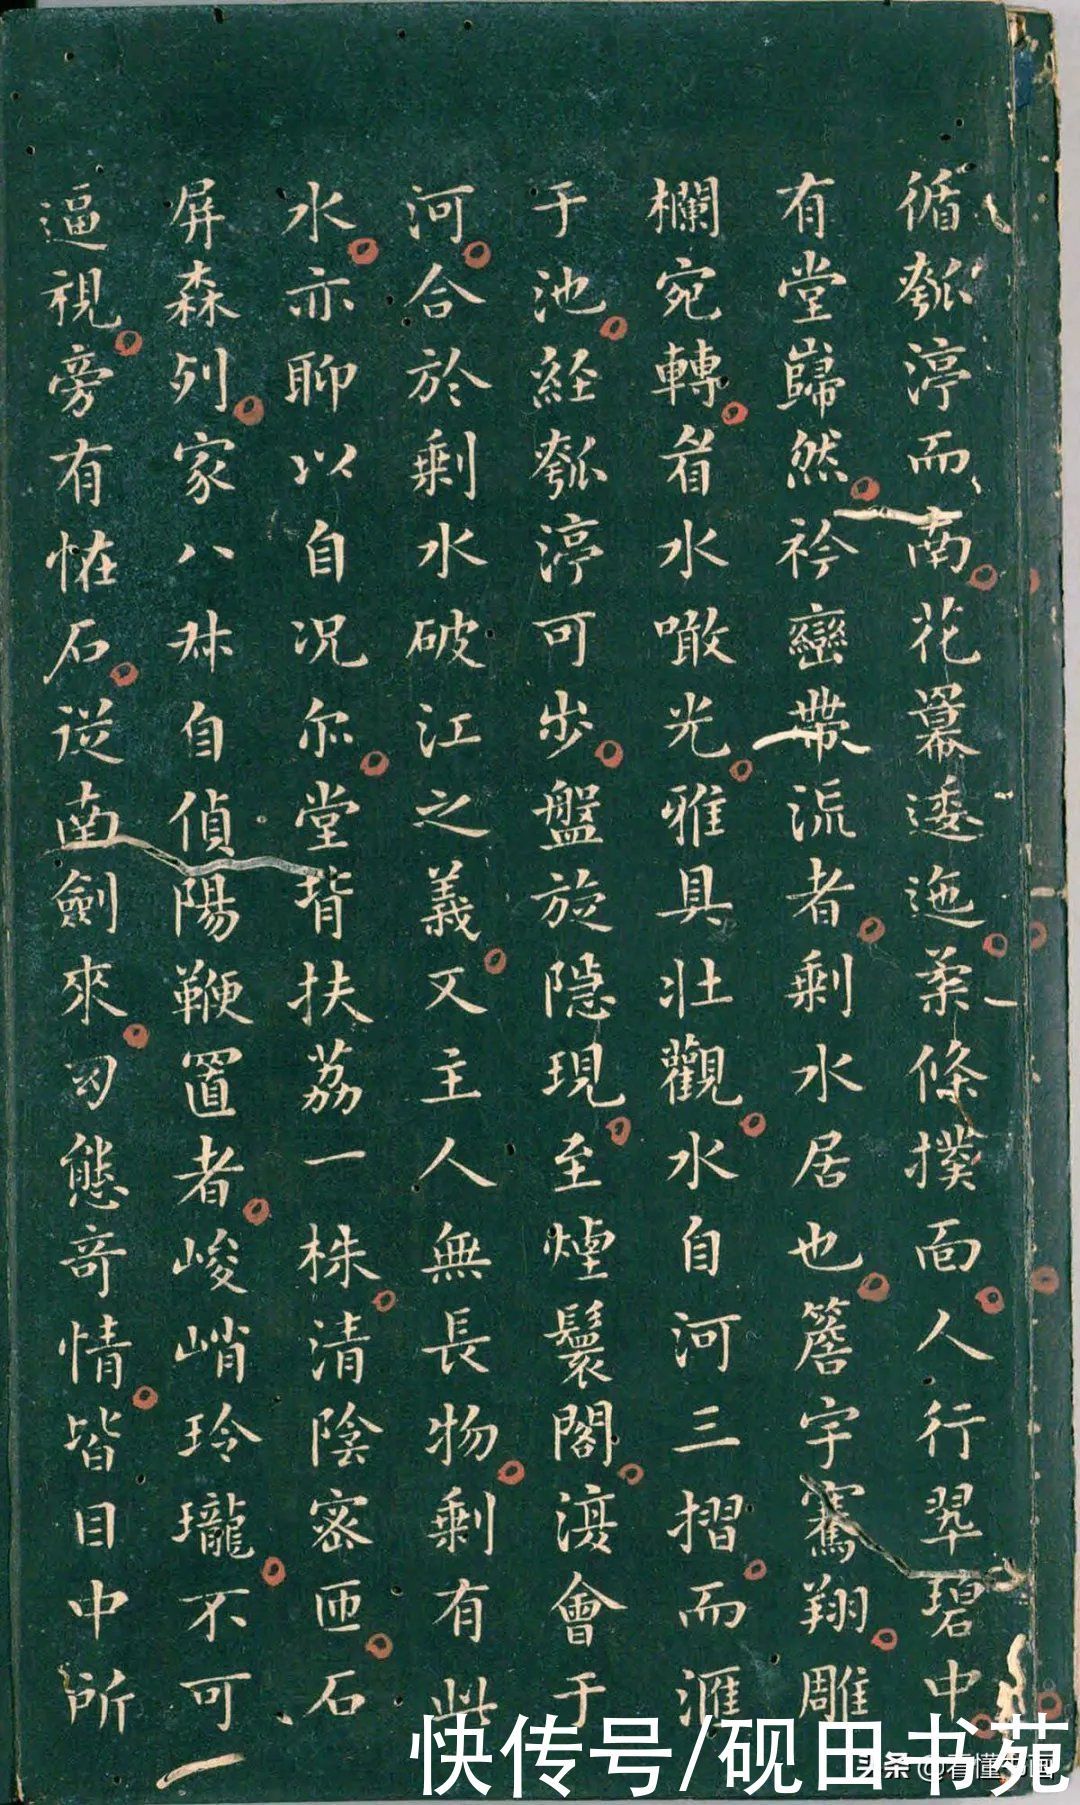 循瓠渟而南花幕逶迤柔條撲面人行翠碧中
有堂巋然衿巒帶流者剩水居也簷宇騫翔雕
欄宛轉看水噉光雅具壯觀水自河三摺而滙
于池経瓠渟可步盤旋隐現至煙鬟閣復會于
河合於剩水破江之義又主人無長物剩有此
水亦聊以自况尔堂背扶荔一株清陰宻匝石
屏森列家八叔自偵陽鞭置者峻峭玲瓏不可
逼視旁有恠石從南劍來幻態竒情皆目中所
快传号/砚田书苑
头条 @看懂书画